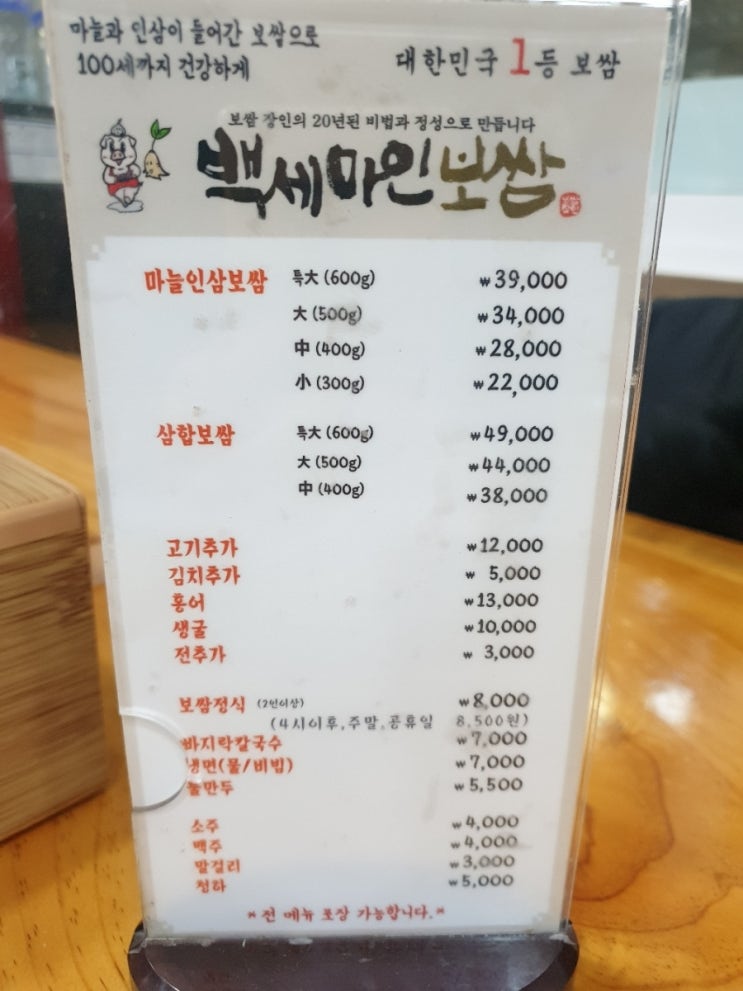 마늘과 인삼이 들어간 보쌈으로
100세까지 건강하게
대한민국 1등 보쌈
보쌈 장인의 20년된 비법과 정성으로 만듭니다
백세마인보쌈
마늘인삼보쌈 특大 (600g) ₩39,000
大 (500g) ₩34,000
中 (400g) ₩28,000
小 (300g) ₩22,000
삼합보쌈 특大 (600g) ₩49,000
大 (500g) ₩44,000
中 (400g) ₩38,000
고기추가 ₩12,000
김치추가 ₩ 5,000
홍어 ₩13,000
생굴 ₩10,000
전추가 ₩ 3,000
보쌈정식 (2인이상) ₩8,000
(4시이후,주말,공휴일 8,500원)
바지락칼국수 ₩7,000
냉면(물/비빔) ₩7,000
₩5,500
소주 ₩4,000
맥주 ₩4,000
말걸리 ₩3,000
청하 ₩5,000
* 전 메뉴 포장 가능합니다.*